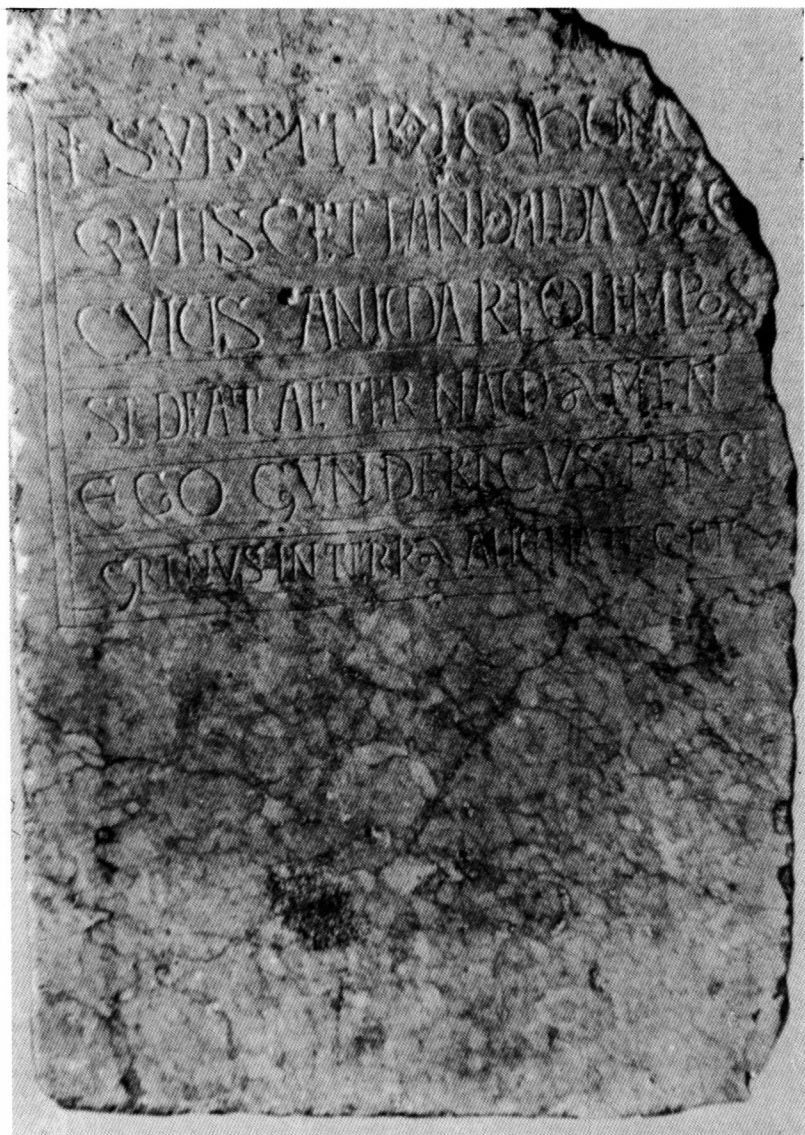 E SVB ATTRIO HUM
QVIISCET LANDALDA V
CVICIS ANIMA REQIEM POS
SIDEAT AETERNAM AMEN
EGO GVNDERICVS PERE
GRINVS IN TERRA ALIENA TEGET